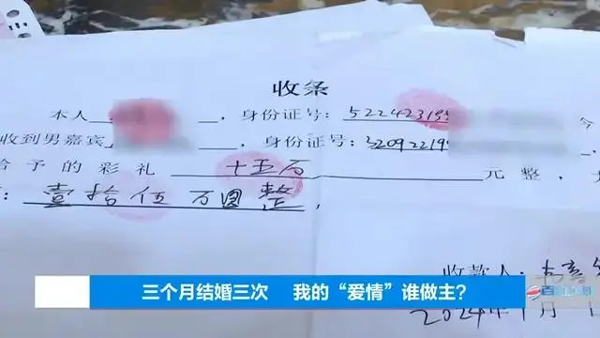 收条
本人 ，身份证号：522423199 今
收到男嘉宾 ，身份证号：32092219
给予的彩礼 十五万 元整，
：壹拾伍万圆整，
收款人：
2024年 月
三个月结婚三次 我的“爱情”谁做主？